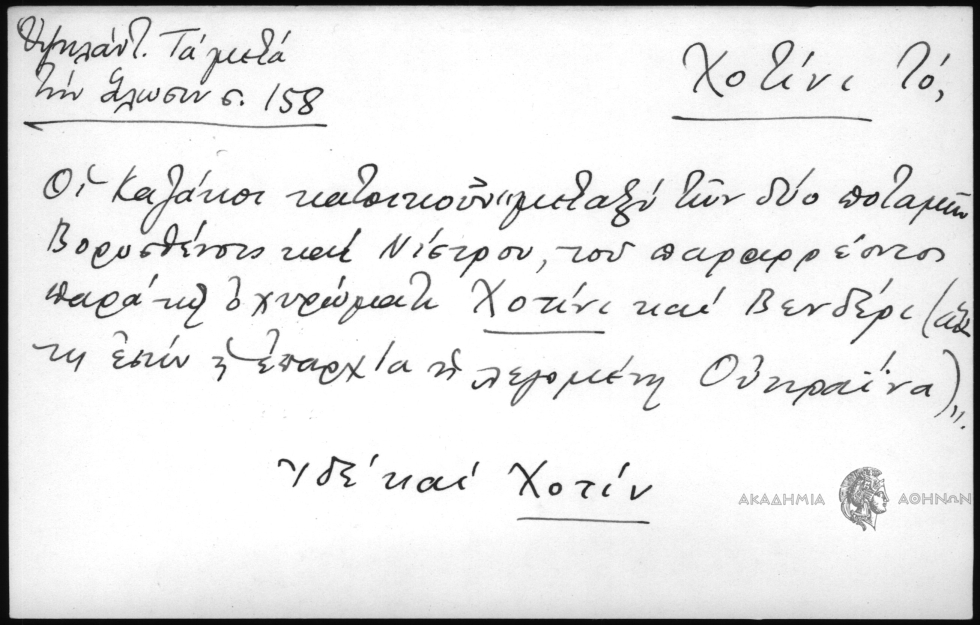 Ὑψηλάντ. Τά μετά
τήν Ἅλωσιν σ. 158
Χοτίνι τό,
Οἱ Καζάκοι κατοικοῦν "μεταξύ τῶν δύο ποταμῶν
Βορυσθένους καί Νίστρου, τοῦ παραρρέοντος
παρά τῷ ὀχυρώματι Χοτίνι καί Βενδέρι (αὕ-
τη ἐστίν ἡ ἐπαρχία ἡ λεγομένη Οὐκραΐνα)".
Ἰδέ καί Χοτίν
ΑΚΑΔΗΜΙΑ ΑΘΗΝΩΝ